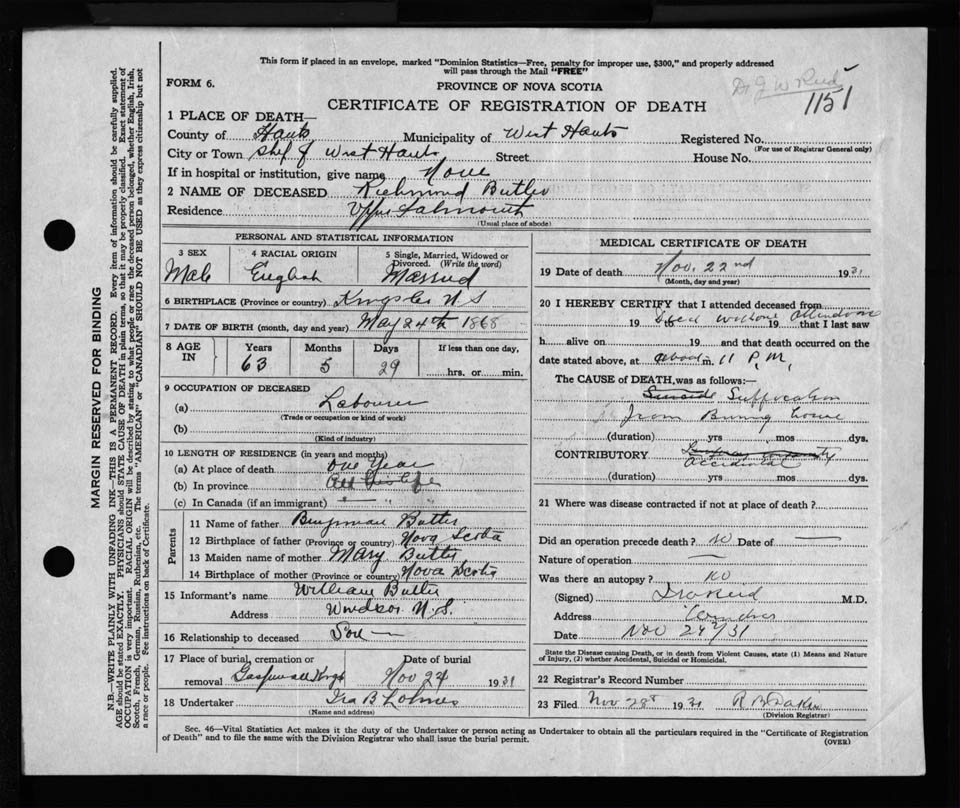 This form if placed in an envelope, marked "Dominion Statistics—Free, penalty for improper use, $300," and properly addressed
will pass through the Mail "FREE"
FORM 6.
PROVINCE OF NOVA SCOTIA
Dr J W Reid
1151
CERTIFICATE OF REGISTRATION OF DEATH
1 PLACE OF DEATH—
County of Hants Municipality of West Hants Registered No.
(For use of Registrar General only)
City or Town of West Hants Street House No.
If in hospital or institution, give name None
2 NAME OF DECEASED Richmond Butler
Residence Upper Falmouth
(Usual place of abode)
PERSONAL AND STATISTICAL INFORMATION
3 SEX 4 RACIAL ORIGIN 5 Single, Married, Widowed or
Divorced. (Write the word)
Male English Married
6 BIRTHPLACE (Province or country) Kings Co N S
7 DATE OF BIRTH (month, day and year) May 24th 1868
8 AGE IN Years Months Days If less than one day,
63 5 29 hrs. or min.
9 OCCUPATION OF DECEASED
(a) Labourer
(Trade or occupation or kind of work)
(b)
(Kind of industry)
10 LENGTH OF RESIDENCE (in years and months)
(a) At place of death one year
(b) In province All his life
(c) In Canada (if an immigrant) — " "
Parents
11 Name of father Benjman Butler
12 Birthplace of father (Province or country) Nova Scotia
13 Maiden name of mother Mary Butler
14 Birthplace of mother (Province or country) Nova Scotia
15 Informant's name William Butler
Address Windsor N.S.
16 Relationship to deceased Son —
17 Place of burial, cremation or Date of burial
removal Nov 24 1931
18 Undertaker Ira B
(Name and address)
MEDICAL CERTIFICATE OF DEATH
19 Date of death Nov. 22nd 1931
(Month, day and year)
20 I HEREBY CERTIFY that I attended deceased from
19 to 19 that I last saw
Died without attendance
h alive on 19 and that death occurred on the
date stated above, at about m. 11 P.M.
The CAUSE of DEATH, was as follows:—
Suicide Suffocation
from Burning house
(duration) yrs mos dys.
CONTRIBUTORY
Accidental
(duration) yrs. mos. dys.
21 Where was disease contracted if not at place of death?
Did an operation precede death? no Date of —
Nature of operation —
Was there an autopsy? no
(Signed) J W Reid M.D.
Address Windsor
Date Nov 24/31
State the Disease causing Death, or in death from Violent Causes, state (1) Means and Nature
of Injury, (2) whether Accidental, Suicidal or Homicidal.
22 Registrar's Record Number
23 Filed Nov 28th 1931 R B
(Division Registrar)
Sec. 46—Vital Statistics Act makes it the duty of the Undertaker or person acting as Undertaker to obtain all the particulars required in the "Certificate of Registration
of Death" and to file the same with the Division Registrar who shall issue the burial permit.
(OVER)
MARGIN RESERVED FOR BINDING
N.B.—WRITE PLAINLY WITH UNFADING INK—THIS IS A PERMANENT RECORD. Every item of information should be carefully supplied.
AGE should be stated EXACTLY. PHYSICIANS should STATE CAUSE OF DEATH in plain terms, so that it may be properly classified. Exact statement of
OCCUPATION is very important. RACIAL ORIGIN will be described by stating to what people or race the deceased person belonged, whether English, Irish,
Scotch, French, German, Russian, Ruthenian, etc. The terms "AMERICAN" or "CANADIAN" SHOULD NOT BE USED as they express citizenship but not
a race or people. See instructions on back of Certificate.